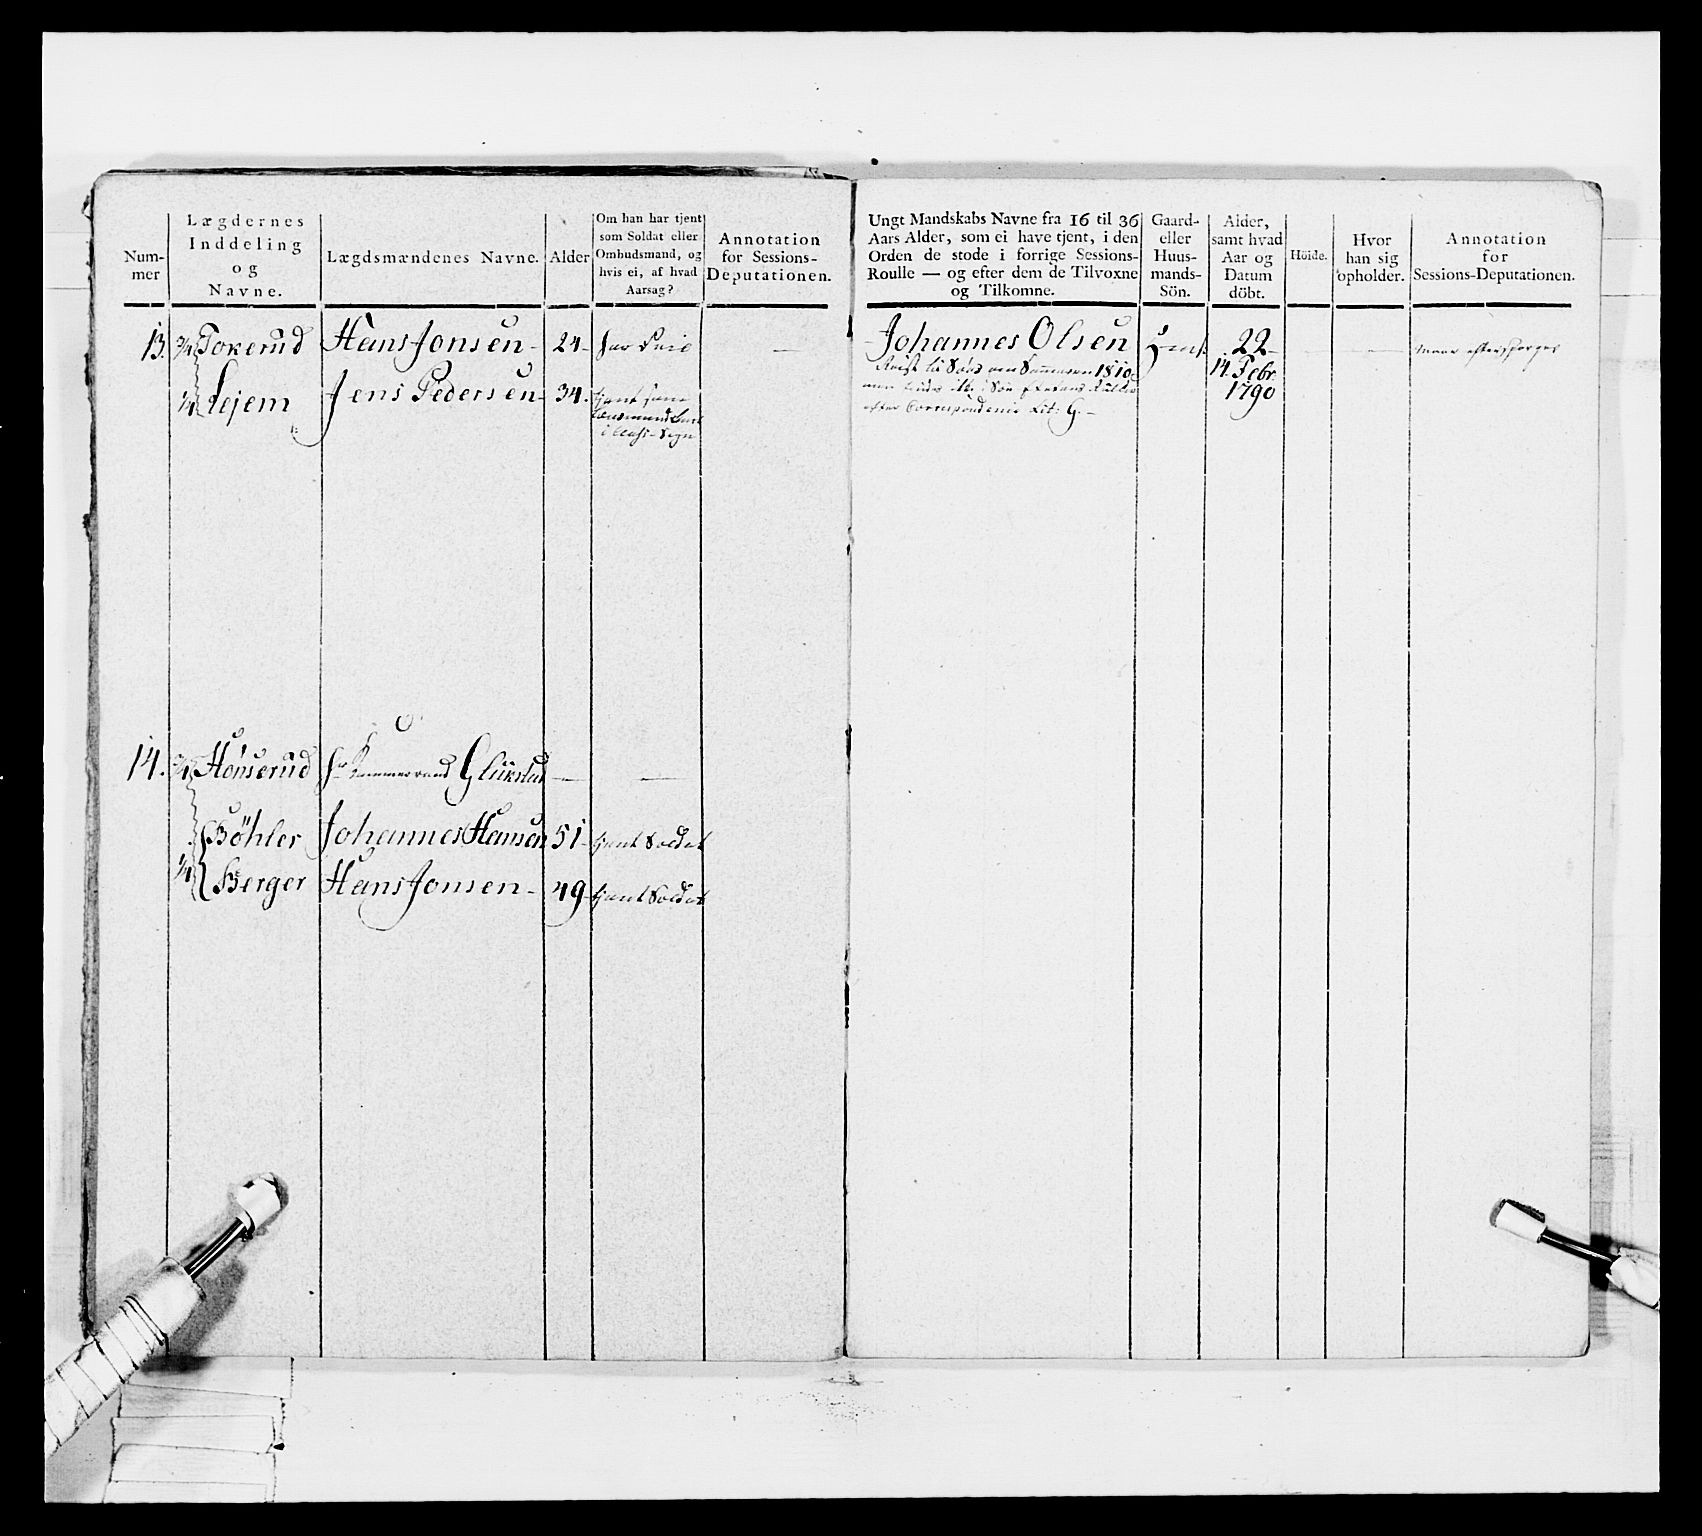 Num-
mer
Lægdernes
Inddeling
og
Navne.
Lægdsmændenes Navne.
Alder
Om han har tjent
som Soldat eller
Ombudsmand, og
hvis ei, af hvad
Aarsag?
Annotation
for Sessions-
Deputationen.
13. 3/4 Tokerud Hans Jonsen - 24 -
1/4 Lejem Jens Pedersen - 34.
tjent som
14. 3/4 Hönserud Hr Kammerraad Glükstad
Böhler Johannes Hansen 51 - tjent Soldat
1/4 Berger Hans Jonsen - 49 - tjent Soldat
Ungt Mandskabs Navne fra 16 til 36
Aars Alder, som ei have tjent, i den
Orden de stode i forrige Sessions-
Roulle — og efter dem de Tilvoxne
og Tilkomne.
Gaard-
eller
Huus-
mands-
Sön.
Alder,
samt hvad
Aar og
Datum
döbt.
Höide.
Hvor
han sig
opholder.
Annotation
for
Sessions-Deputationen.
Johannes Olsen 22 -
Reist til Søes om Sommeren 1810
14. Febr.
1790
efter Correspondence Lit: G. -